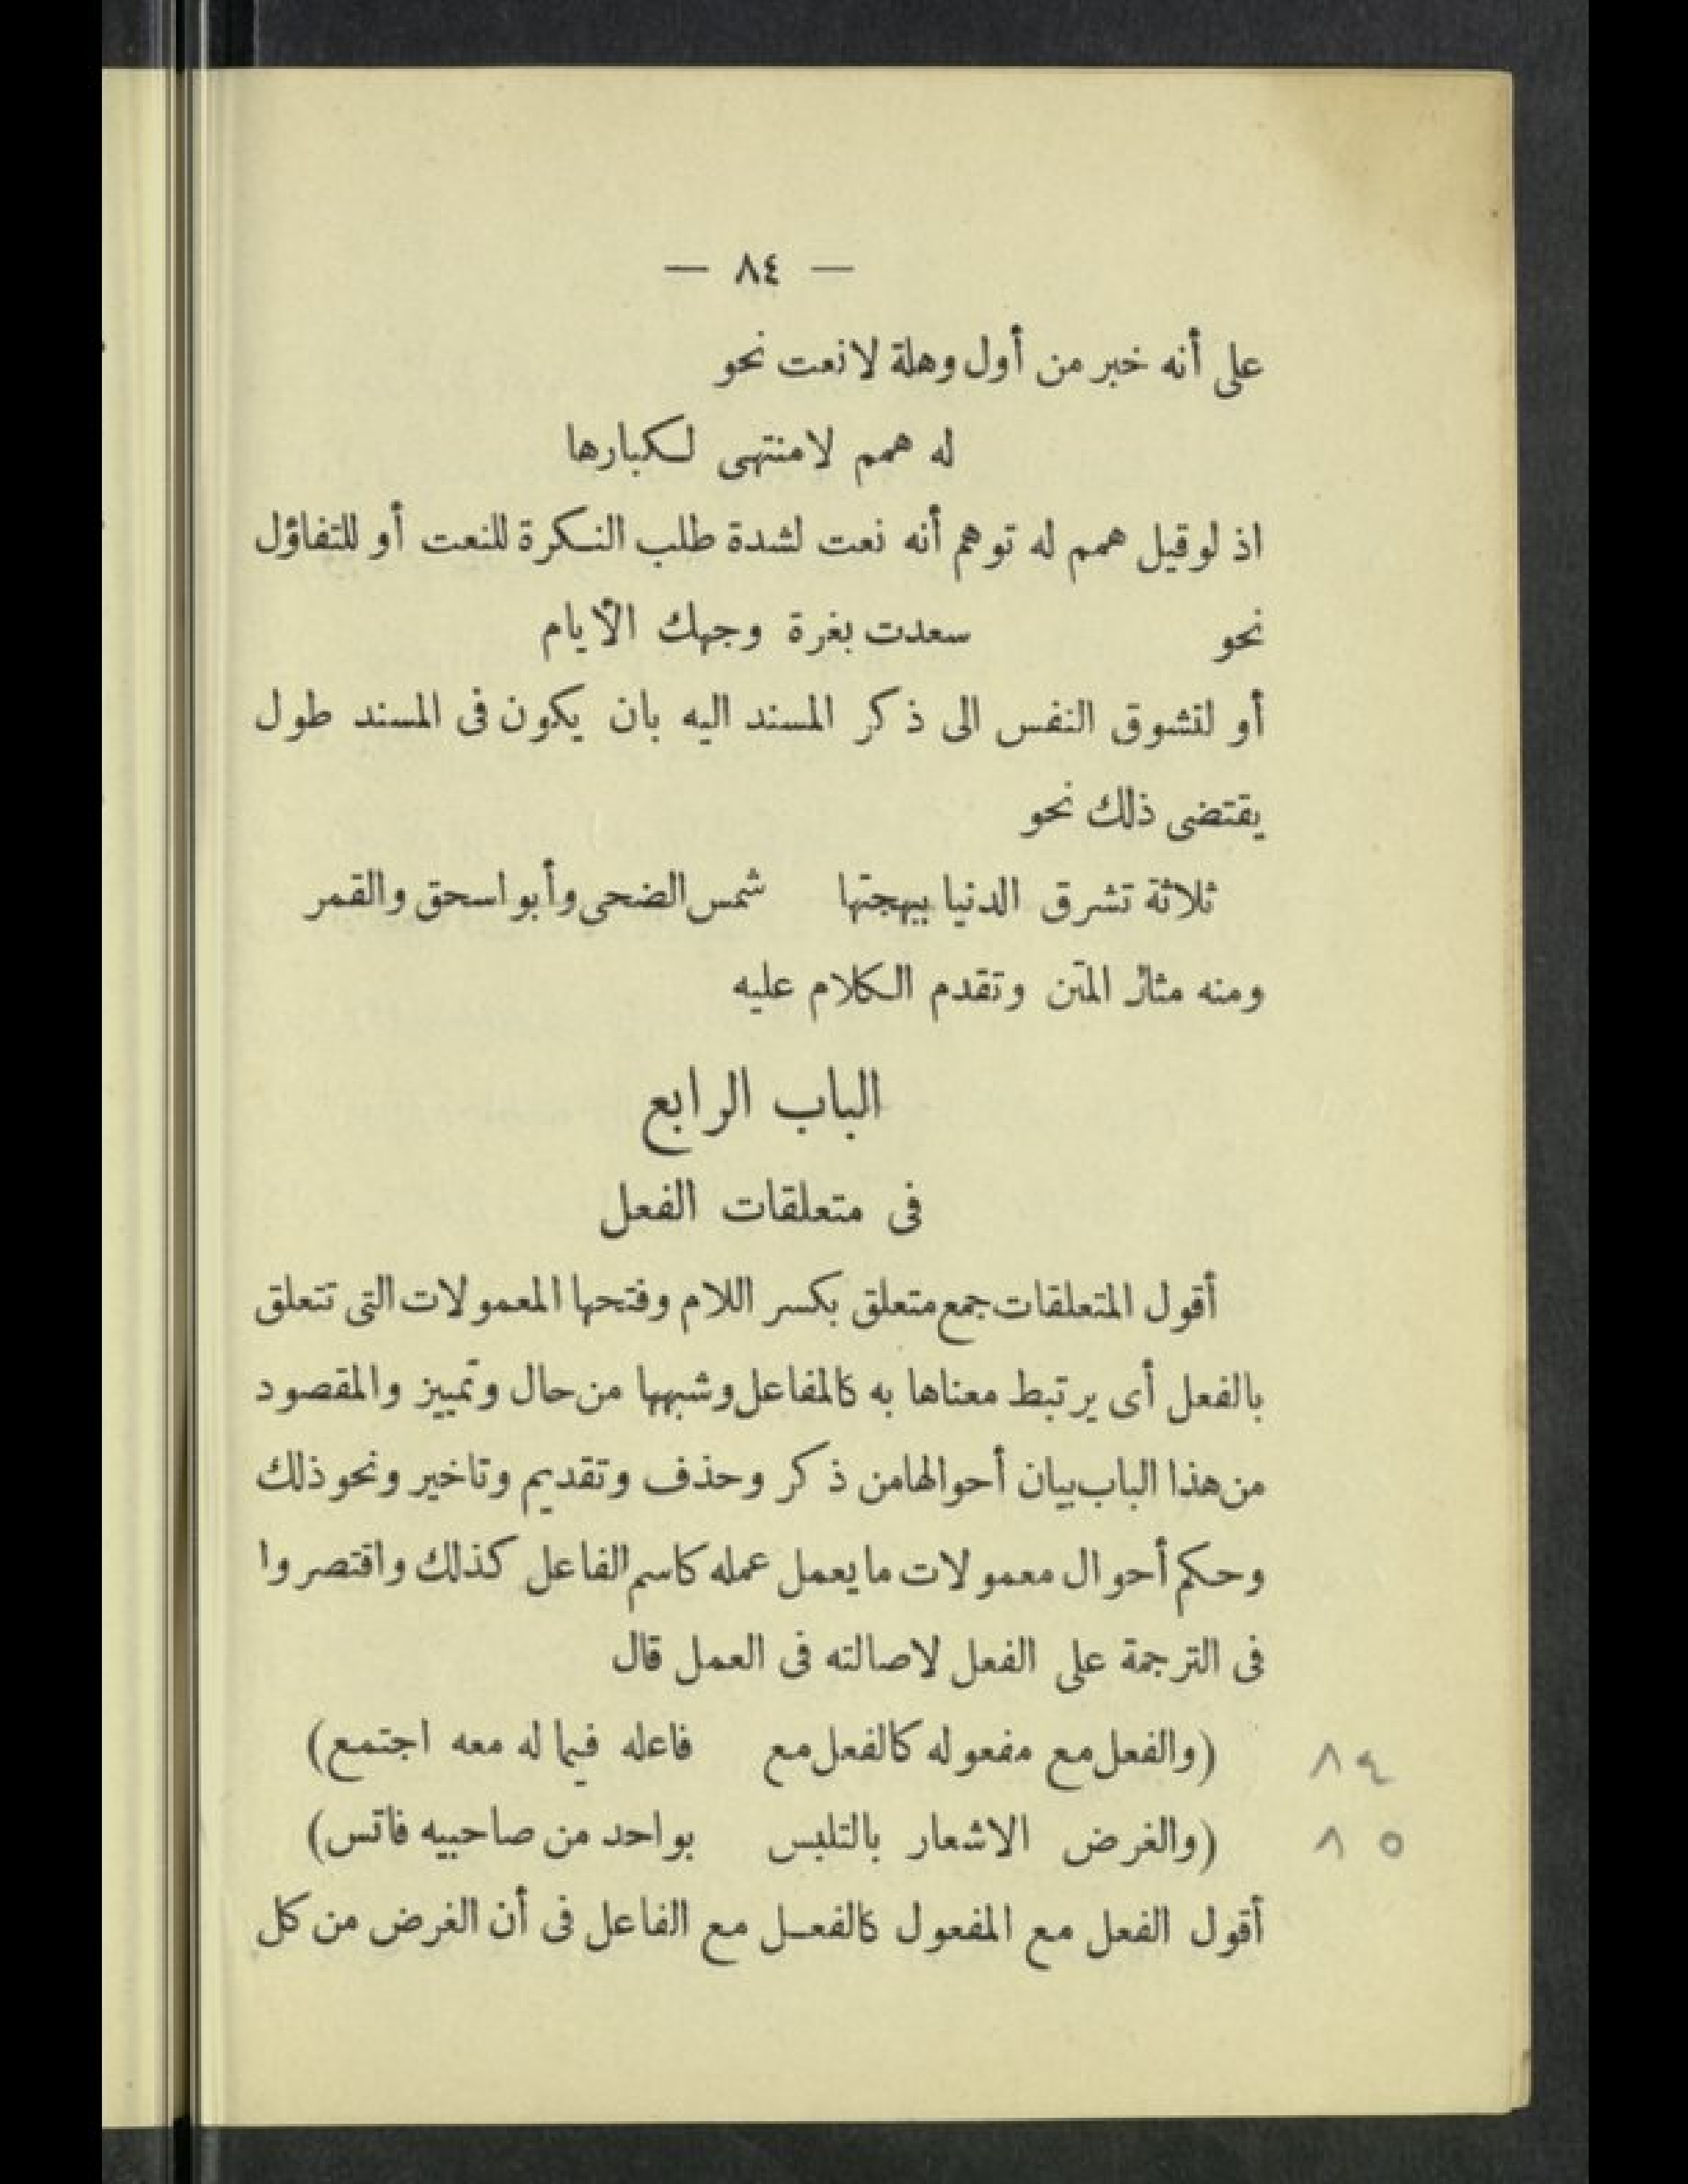 — ٨٤ —
على أنه خبر من أول وهلة لا نعت نحو
له همم لا منتهى لكبارها
اذ لو قيل همم له توهم أنه نعت لشدة طلب النكرة للنعت أو للتفاؤل
نحو سعدت بغرة وجهك الأيام
أو لتشوق النفس الى ذكر المسند اليه بان يكون فى المسند طول
يقتضى ذلك نحو
ثلاثة تشرق الدنيا ببهجتها شمس الضحى وأبو اسحق والقمر
ومنه مثال المتن وتقدم الكلام عليه
الباب الرابع
فى متعلقات الفعل
أقول المتعلقات جمع متعلق بكسر اللام وفتحها المعمولات التى تتعلق
بالفعل أى يرتبط معناها به كالمفاعل وشبهها من حال وتمييز والمقصود
من هذا الباب بيان أحوالها من ذكر وحذف وتقديم وتاخير ونحو ذلك
وحكم أحوال معمولات ما يعمل عمله كاسم الفاعل كذلك واقتصروا
فى الترجمة على الفعل لاصالته فى العمل قال
(والفعل مع مفعوله كالفعل مع فاعله فيما له معه اجتمع) ٨٤
(والغرض الاشعار بالتلبس بواحد من صاحبيه فاتس) ٨٥
أقول الفعل مع المفعول كالفعل مع الفاعل فى أن الغرض من كل